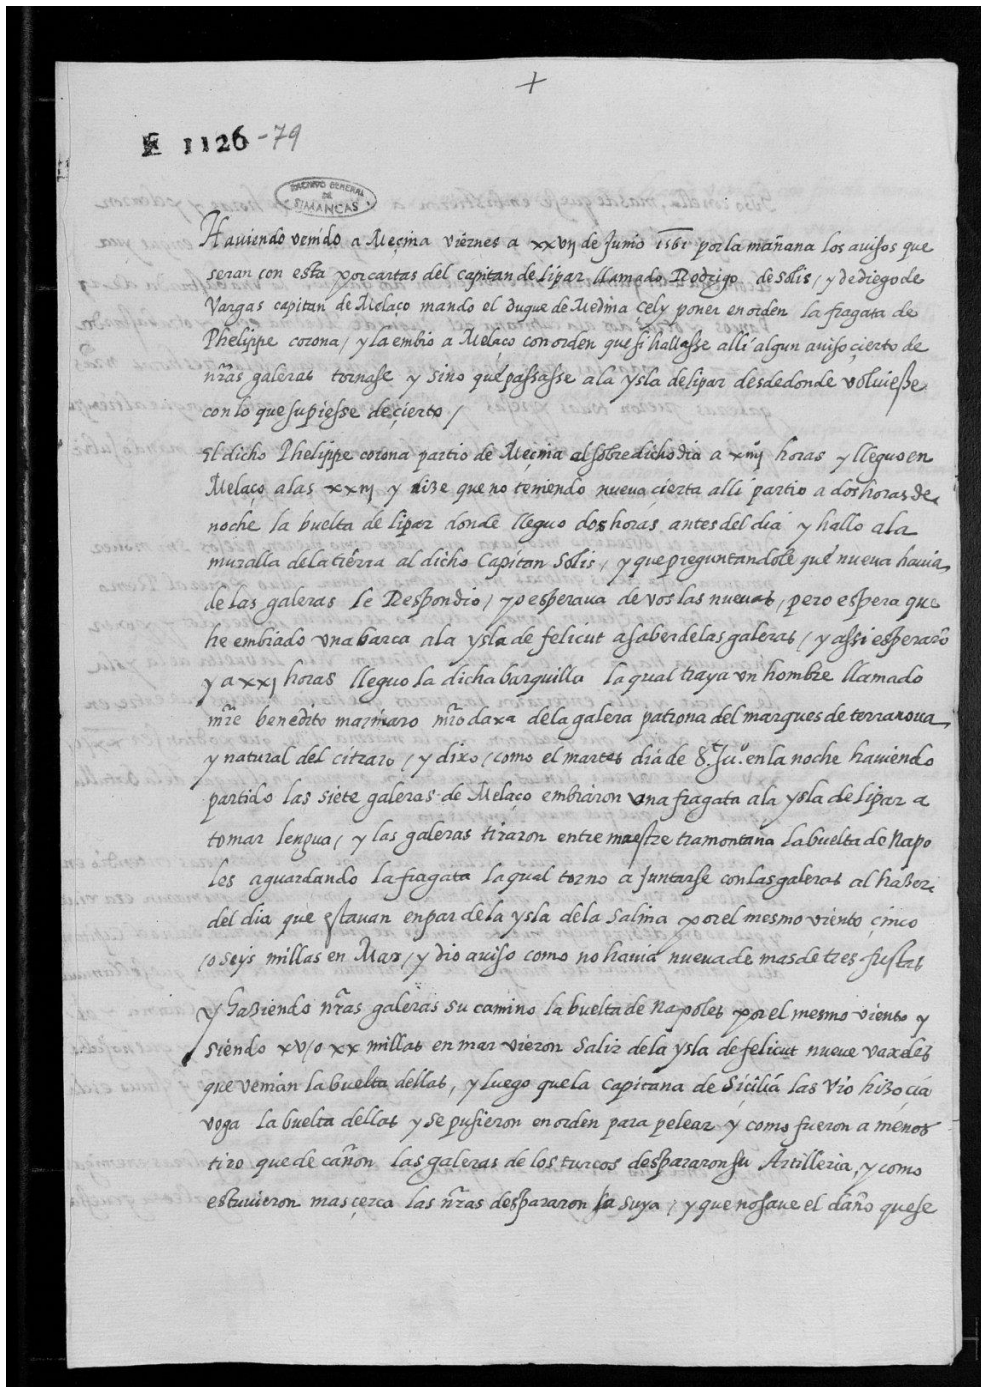 +
E 1126-79
ARCHIVO GENERAL
DE
SIMANCAS
Haviendo venido a Meçina viernes a xxvij de Junio 1561 por la mañana los avisos que
seran con esta por cartas del capitan de lipar llamado Rodrigo de Solis / y de diego de
Vargas capitan de Melaço mando el Duque de Medina çely poner en orden la fragata de
Phelippe corona / y la embio a Melaço con orden que si hallasse alli algun aviso çierto de
nr̃as galeras tornase y sino que passasse a la ysla de lipar desde donde volviesse
con lo que supiesse de çierto /
El dicho Phelippe corona partio de Meçina al sobredicho dia a xiiij horas y lleguo en
Melaço a las xxiij y dize que no teniendo nueva çierta alli partio a dos horas de
noche la buelta de lipar donde lleguo dos horas antes del dia y hallo a la
muralla de la tierra al dicho Capitan Solis / y que preguntandole que nueva havia
de las galeras le Respondio / yo esperava de vos las nuevas / pero espera que
he embiado una barca a la ysla de felicut a saber de las galeras / y assi esperarõ
y a xxj horas lleguo la dicha barquilla la qual traya un hombre llamado
mr̃e benedito marinaro mr̃o daxa de la galera patrona del marques de terranova
y natural del citraro / y dixo / como el martes dia de S. Juº. en la noche haviendo
partido las siete galeras de Melaço embiaron una fragata a la ysla de lipar a
tomar lengua / y las galeras tiraron entre maestre tramontana la buelta de Napo
les aguardando la fragata la qual torno a juntarse con las galeras al hazer
del dia que estavan en par de la ysla de la Salina por el mesmo viento çinco
o seys millas en Mar / y dio aviso como no havia nueva de mas de tres fustas
Y haziendo nr̃as galeras su camino la buelta de Napoles por el mesmo viento y
siendo xv / o xx millas en mar vieron salir de la ysla de felicut nueve vaxeles
que venian la buelta dellas, y luego que la capitana de Siçilia las vio hizo çia
voga la buelta dellas y se pusieron en orden para pelear y como fueron a menos
tiro que de cañon las galeras de los turcos despararon su Artilleria, y como
estuvieron mas çerca las nr̃as despararon la suya / y que no save el daño que se